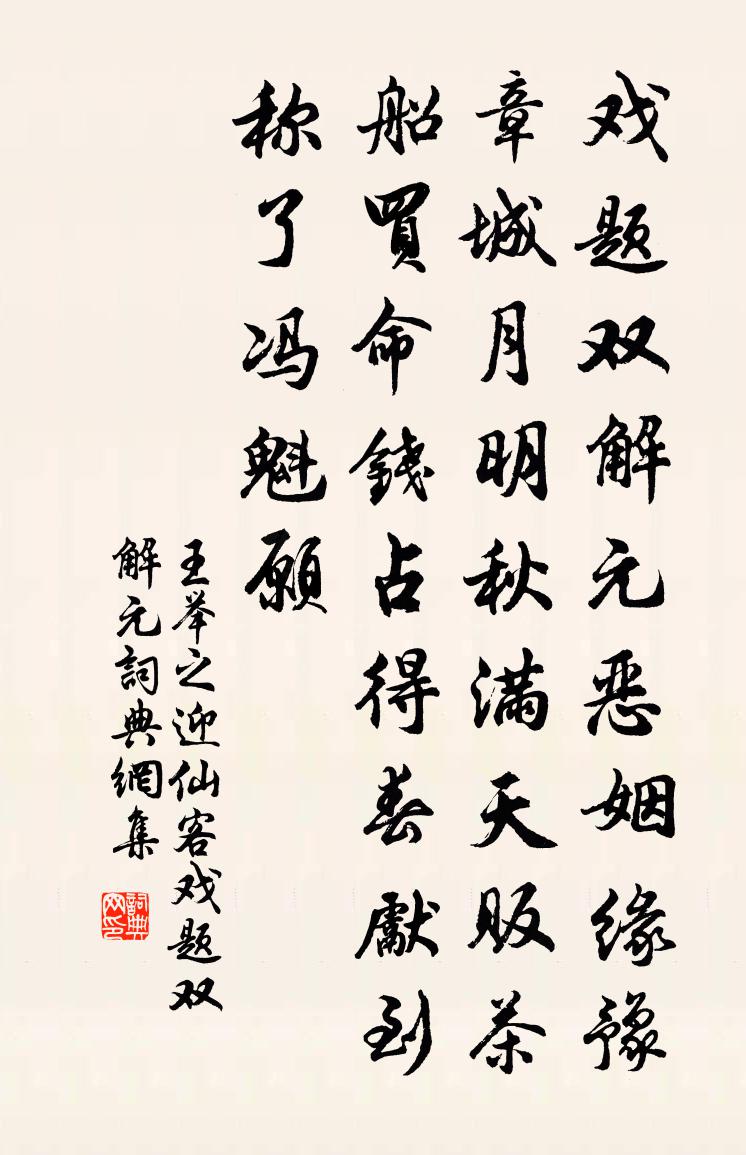 戏题双解元恶姻缘豫
章城月明秋满天贩茶
船買命錢占得春獻到
称了冯魁願
王举之迎仙客戏题双
解元詞典網集
詞典网印